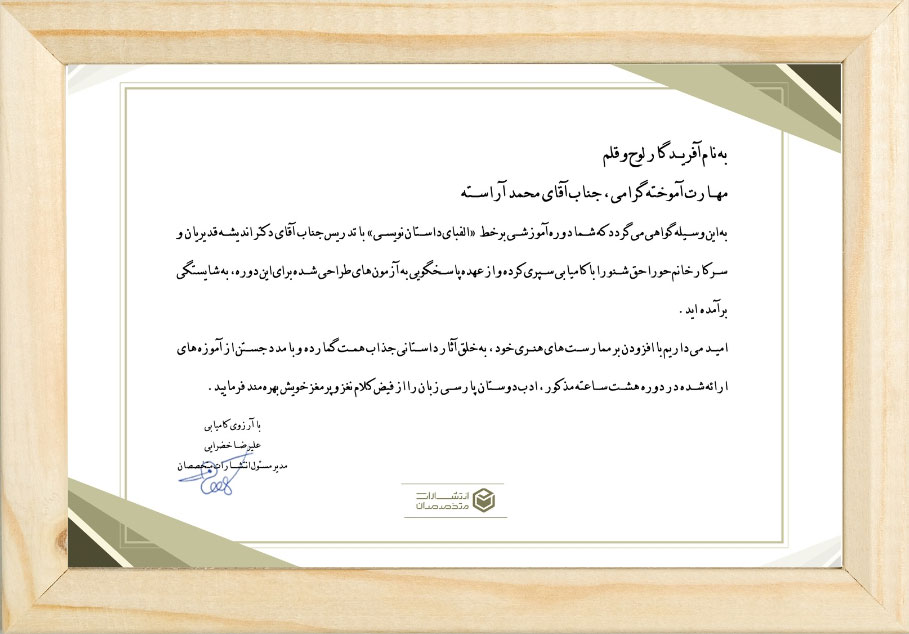 به نام آفریدگار لوح و قلم
مهارت آموخته گرامی، جناب آقای محمد آراسته
به این وسیله گواهی می گردد که شما دوره آموزشی برخط «الفبای داستان نویسی» با تدریس جناب آقای دکتر اندیشه قدیریان و
سرکار خانم حورا حق شنو را با کامیابی سپری کرده و از عهده پاسخگویی به آزمون های طراحی شده برای این دوره، به شایستگی
برآمده اید.
امید می داریم با افزودن بر ممارست های هنری خود، به خلق آثار داستانی جذاب همت گمارده و با مدد جستن از آموزه های
ارائه شده در دوره هشت ساعته مذکور، ادب دوستان پارسی زبان را از فیض کلام نغز و پرمغز خویش بهره مند فرمایید.
با آرزوی کامیابی
علیرضا خضرایی
مدیر مسئول انتشارات متخصصان
انتشارات
متخصصان